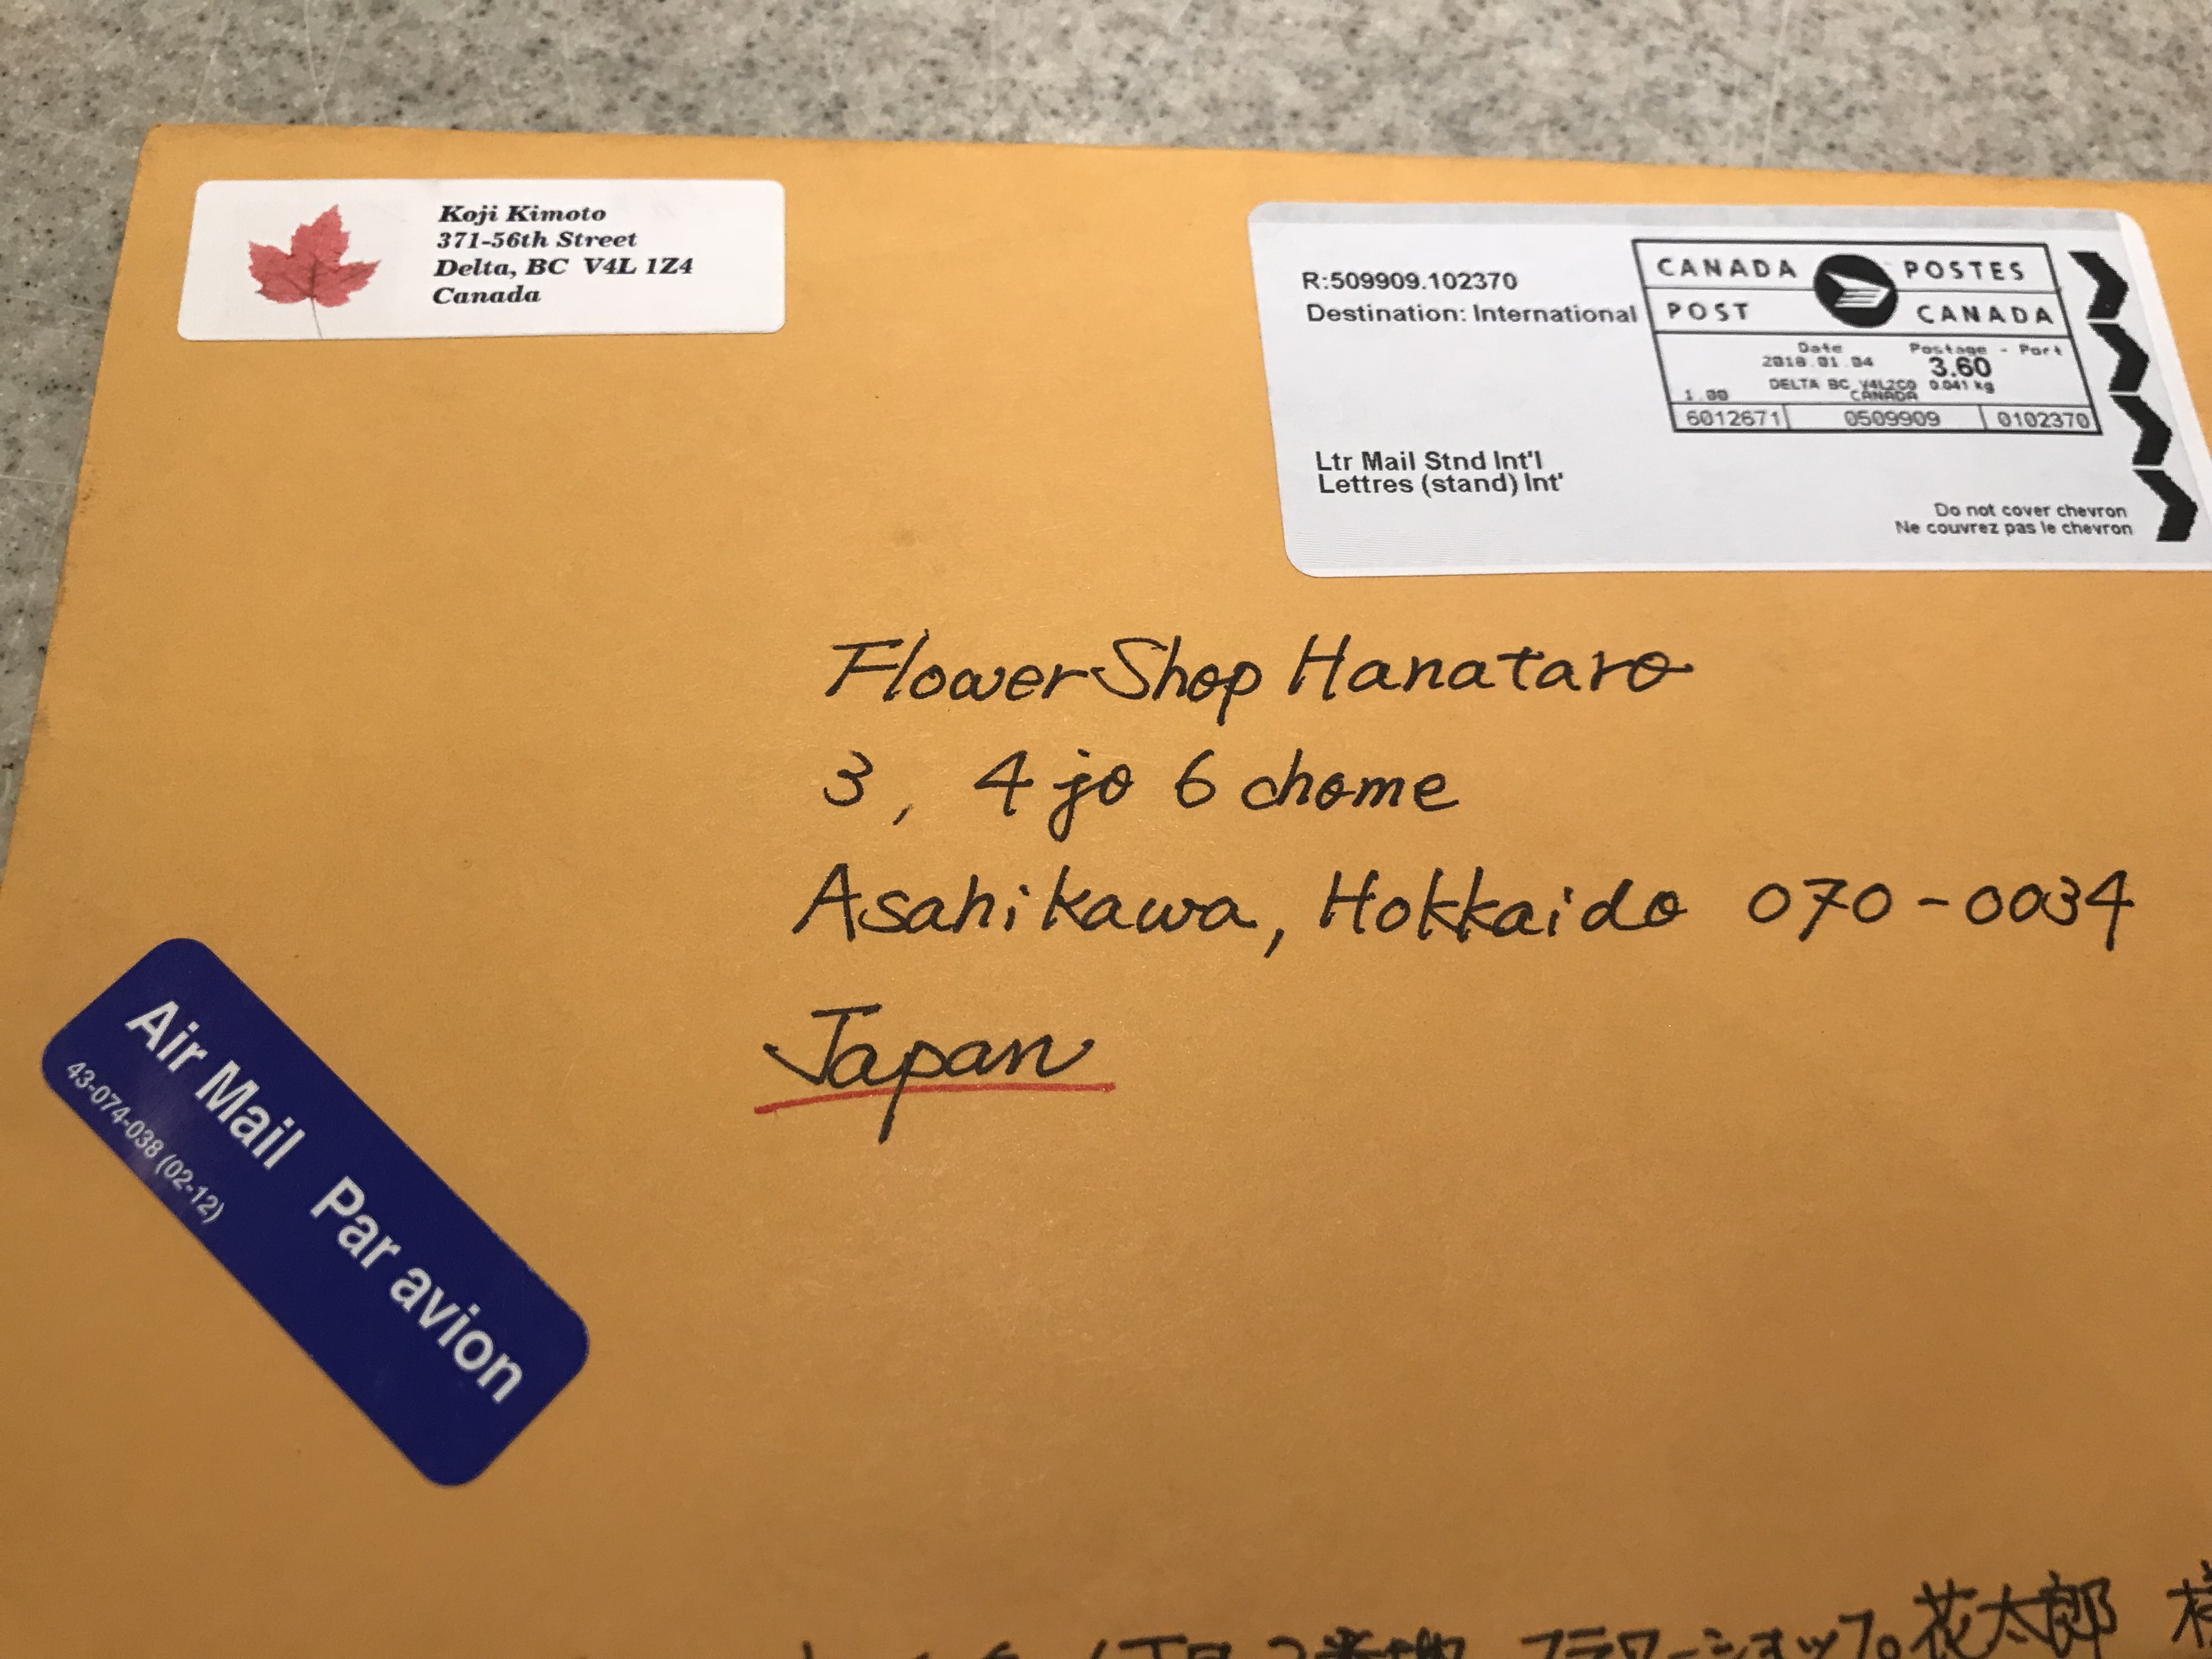 Koji Kimoto
371-56th Street
Delta, BC V4L 1Z4
Canada
R:509909.102370
Destination: International
CANADA POSTES
POST CANADA
Date Postage - Port
2018.01.04 3.60
DELTA BC V4L2C0 0.041 kg
1.00 CANADA
6012671 0509909 0102370
Ltr Mail Stnd Int'l
Lettres (stand) Int'
Do not cover chevron
Ne couvrez pas le chevron
Flower Shop Hanataro
3, 4 jo 6 chome
Asahikawa, Hokkaido 070-0034
Japan
Air Mail Par avion
43-074-038 (02-12)
丁目3番地 フラワーショップ花太郎 様